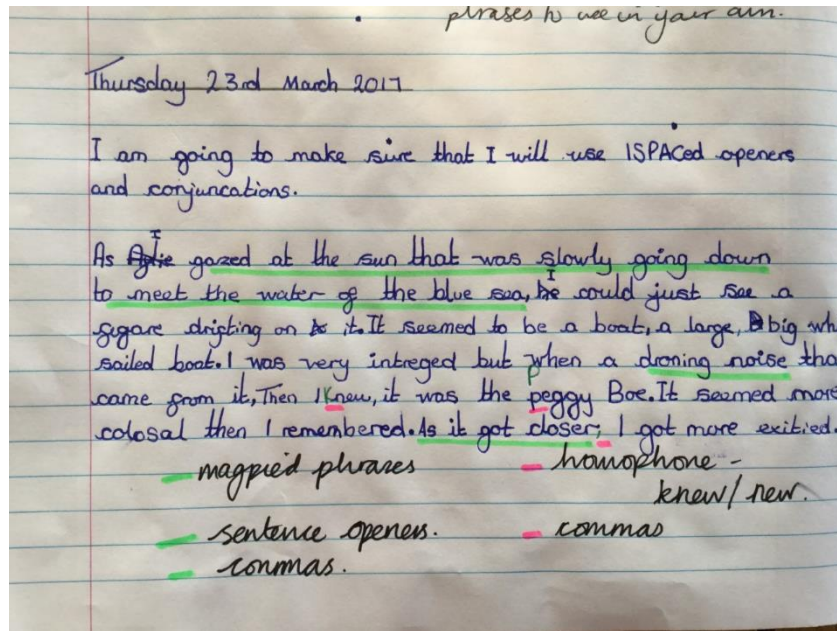 phrases to use in your own.
Thursday 23rd March 2017
I am going to make sure that I will use ISPACed openers
and conjuncations.
As I gazed at the sun that was slowly going down
to meet the water of the blue sea, I could just see a
figare drifting on it. It seemed to be a boat, a large, big wh
sailed boat. I was very intreged but when a droning noise tha
came from it, Then I Knew, it was the peggy Boe. It seemed more
colosal then I remembered. As it got closer, I got more exitied.
magpie'd phrases
homophone -
knew/new.
sentence openers.
commas
commas.